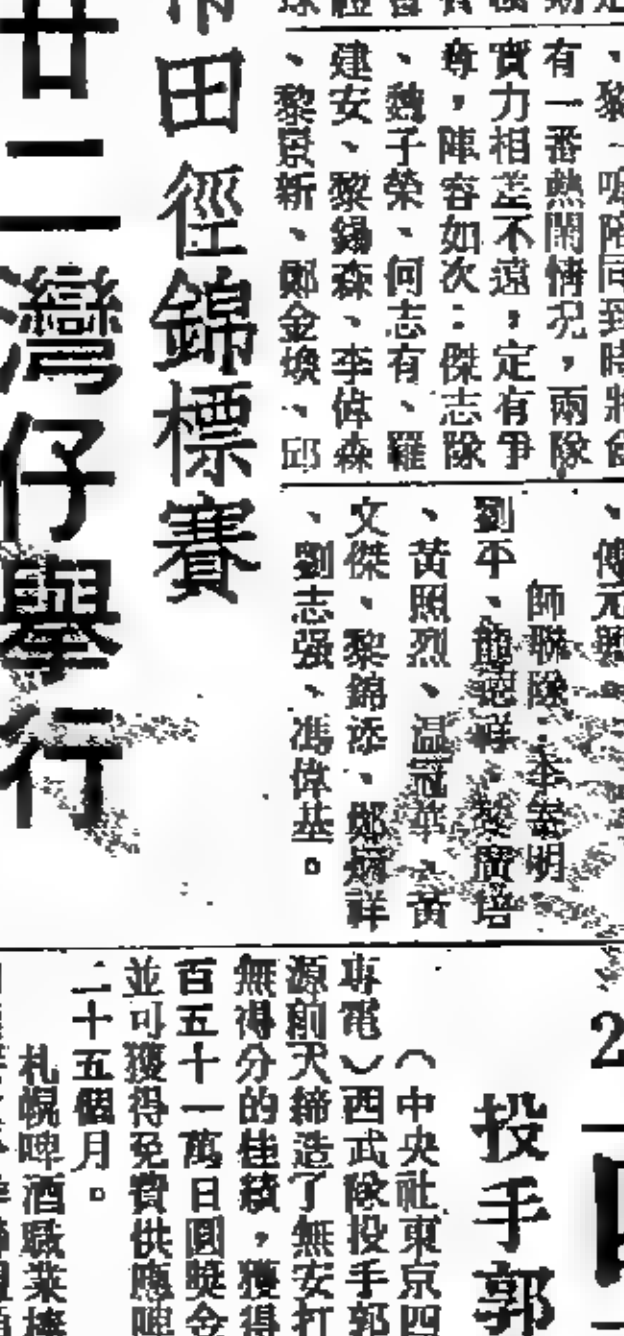 有一番熱鬧情況，兩隊
實力相差不遠，定有爭
奪，陣容如次：傑志隊
、魏子榮、何志有、羅
建安、黎錫森、李偉森
、黎景新、鄭金煥、邱
師聯隊
劉平、
、黃照烈、溫冠華、黃
文傑、黎錦添、鄭炳祥
、劉志强、馮偉基。
市田徑錦標賽
廿二灣仔舉行
投手郭
（中央社東京四
專電）西武隊投手郭
源前天締造了無安打
無得分的佳績，獲得
百五十一萬日圓獎金
並可獲得免費供應啤
二十五個月。
札幌啤酒職業棒